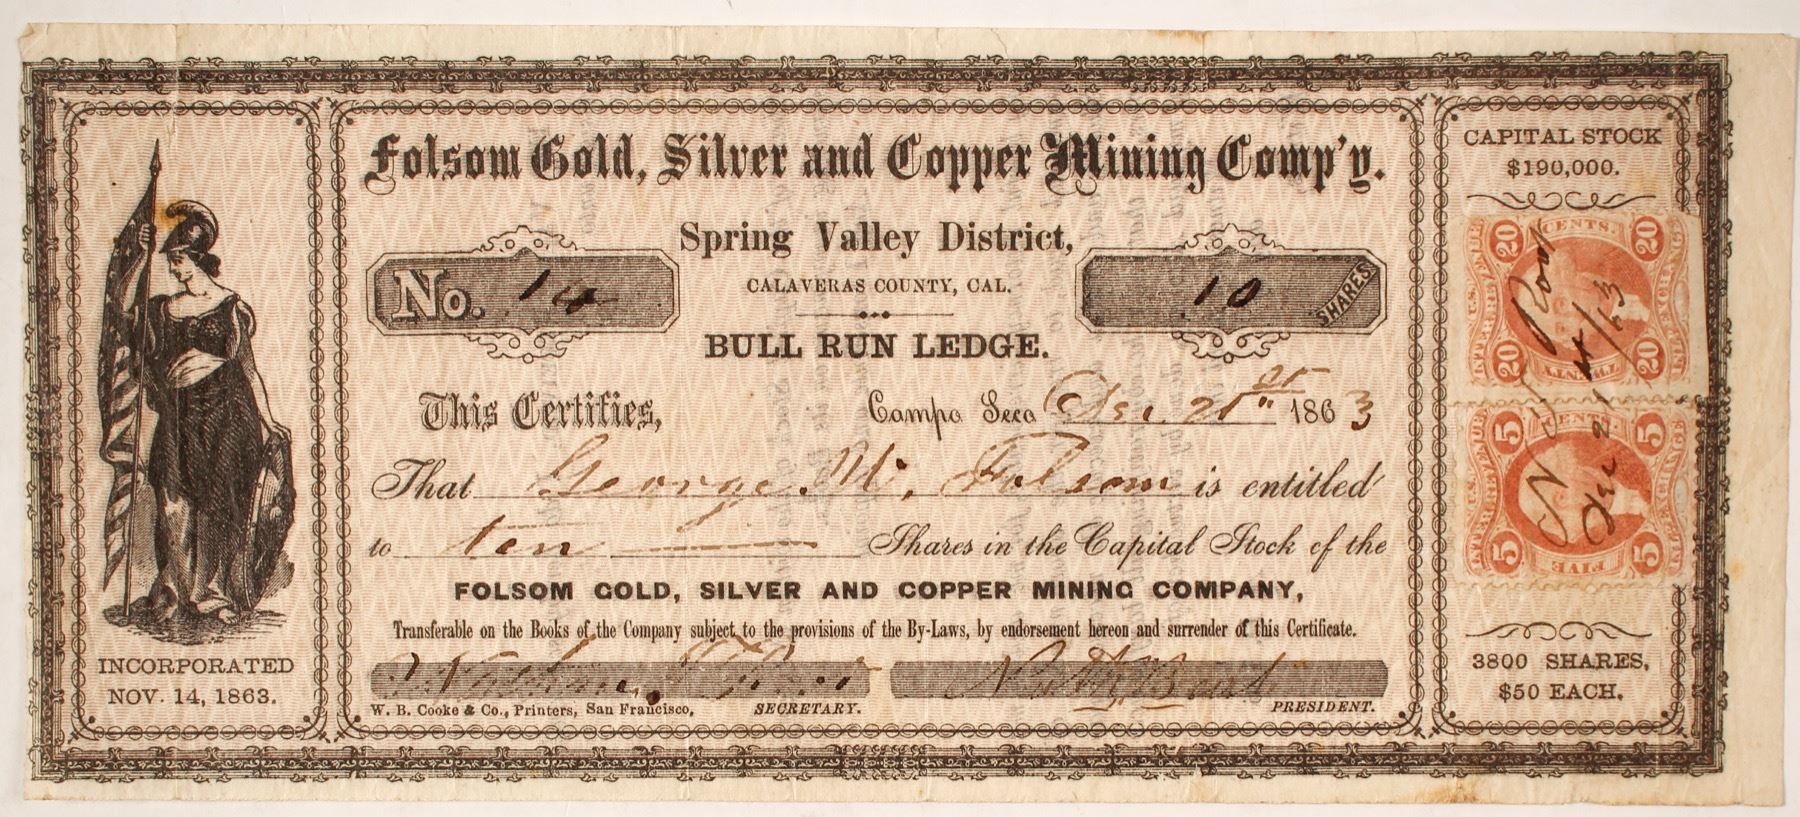 Folsom Gold, Silver and Copper Mining Comp'y.
Spring Valley District,
CALAVERAS COUNTY, CAL.
BULL RUN LEDGE.
No. 14
10 SHARES
This Certifies,
Campo Seco Dec. 21st 1863
That George M. Folsom is entitled
to ten Shares in the Capital Stock of the
FOLSOM GOLD, SILVER AND COPPER MINING COMPANY,
Transferable on the Books of the Company subject to the provisions of the By-Laws, by endorsement hereon and surrender of this Certificate.
W. B. Cooke & Co., Printers, San Francisco,
SECRETARY.
PRESIDENT.
INCORPORATED
NOV. 14, 1863.
CAPITAL STOCK
$190,000.
20 CENTS. 20
U.S. INTER. REVENUE
INL. EXCHANGE
20 TWENTY 20
5 CENTS. 5
U.S. INTER. REVENUE
INL. EXCHANGE
5 FIVE 5
N
Dec 21
3800 SHARES,
$50 EACH.